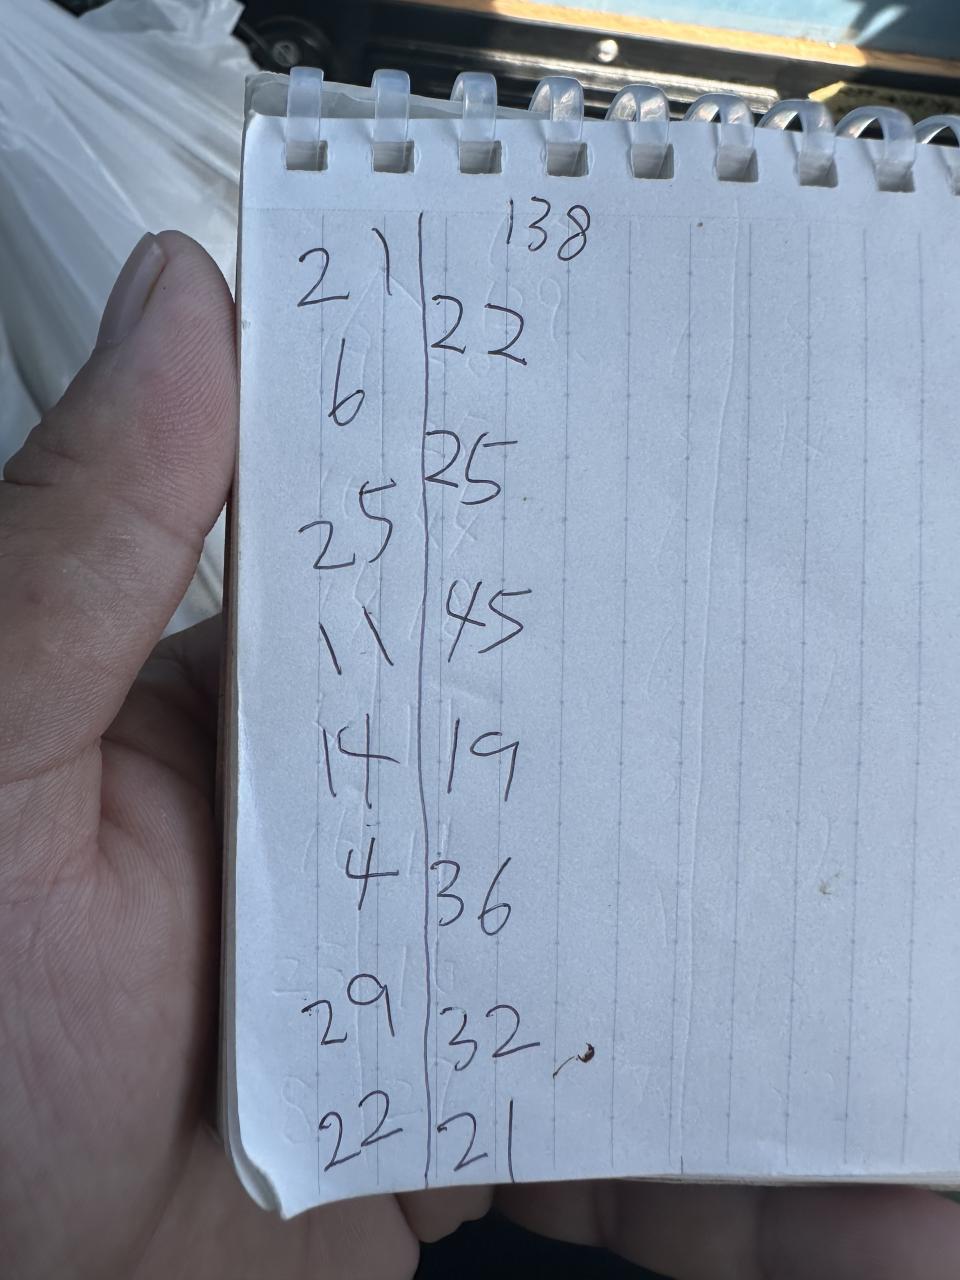 138
21 22
6 25
25 45
11 19
14 36
4 32
29 21
22